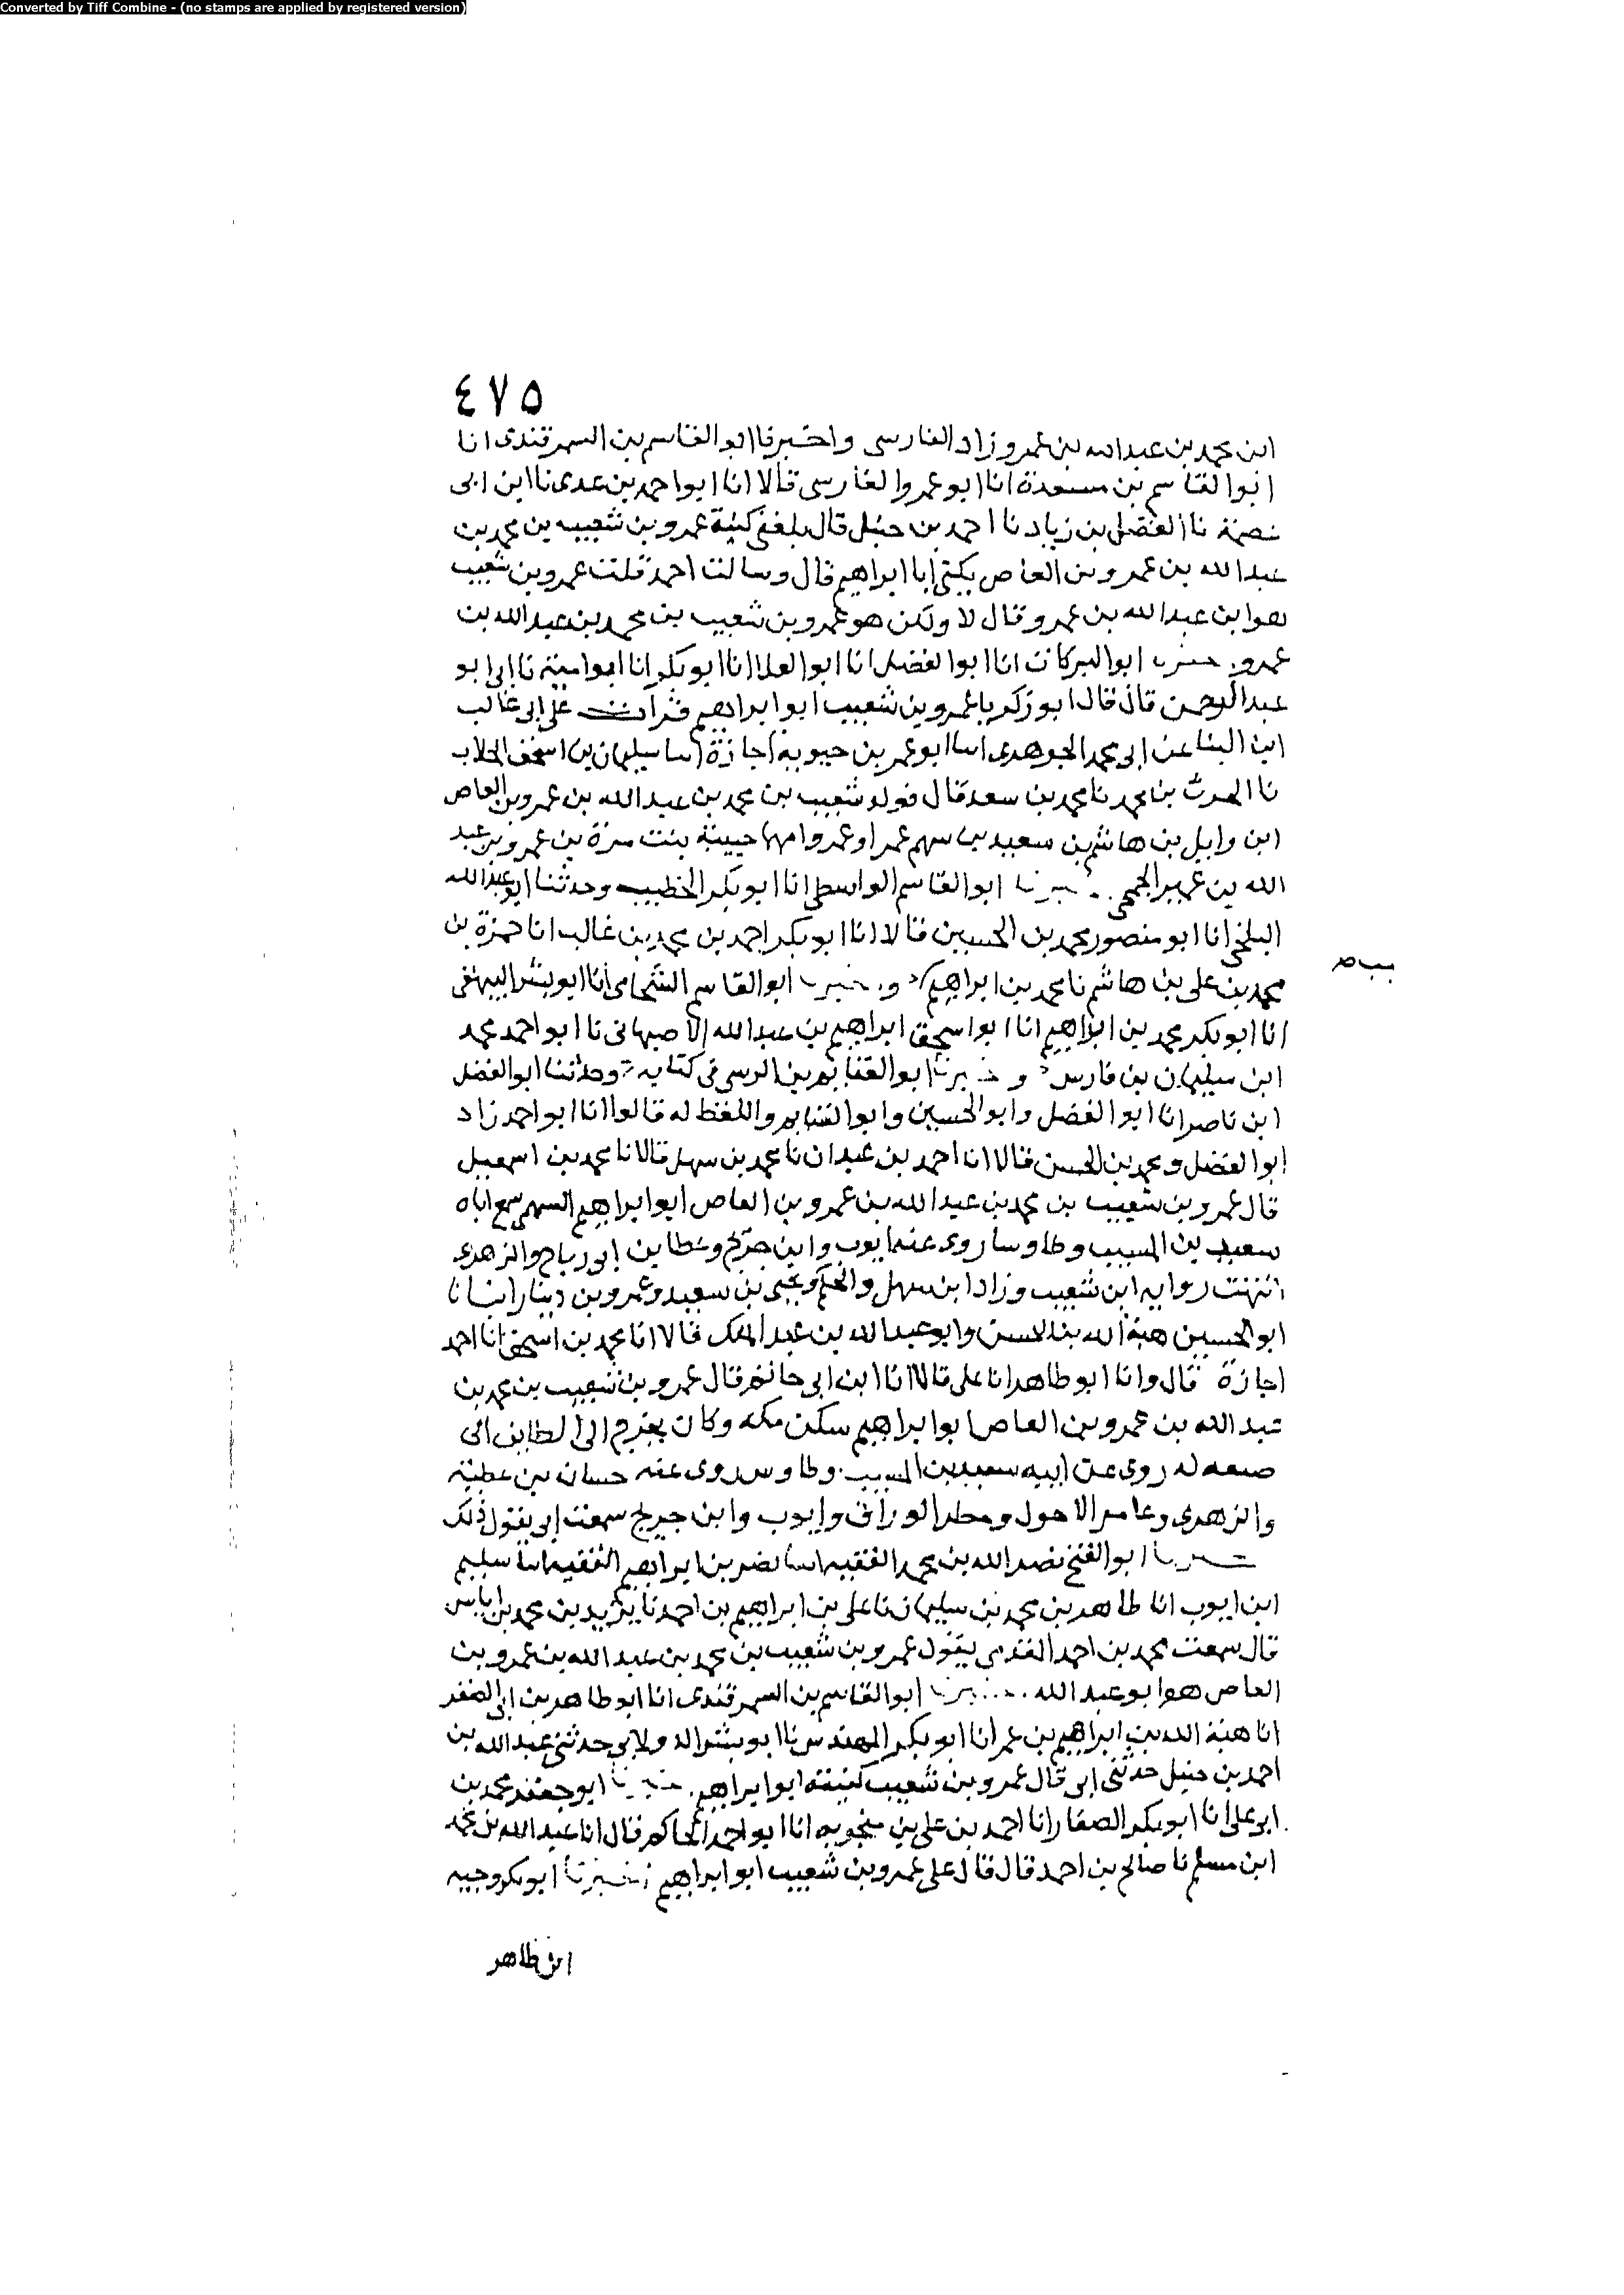 Converted by Tiff Combine - (no stamps are applied by registered version)
٤٧٥
ابن محمد بن عبد الله بن عمرو زاد الفارسى واخبرنا ابو القاسم بن السمرقندى انا
ابو القاسم بن مسعدة انا ابو عمرو الفارسى قالا انا ابو احمد بن عدى نا ابن ابى
عصمة نا الفضل بن زياد نا احمد بن حنبل قال بلغنى كنية عمرو بن شعيب بن محمد بن
عبد الله بن عمرو بن العاص يكنى ابا ابراهيم قال وسالت احمد قلت عمرو بن شعيب
هو ابن عبد الله بن عمرو قال لا ولكن هو عمرو بن شعيب بن محمد بن عبد الله بن
عمرو ابو البركات انا ابو الفضل انا ابو العلا انا ابو بكر انا ابو امية نا ابى ابو
عبد الرحمن قال قال ابو زكريا عمرو بن شعيب ابو ابراهيم قرات على ابى غالب
ابن البنا عن ابى محمد الجوهرى انا ابو عمر بن حيويه اجازة انا سليمان بن اسحق الجلاب
نا الحرث بن محمد نا محمد بن سعد قال فولد شعيب بن محمد بن عبد الله بن عمرو بن العاص
ابن وايل بن هاشم بن سعيد بن سهم عمرا وعمر وامها حبيبة بنت مرة بن عمرو بن عبد
الله بن عمير الجمحى اخبرنا ابو القاسم الواسطى انا ابو بكر الخطيب وحدثنا ابو عبد الله
البلخى انا ابو منصور محمد بن الحسين قالا انا ابو بكر احمد بن محمد بن غالب انا حمزة بن
محمد بن على بن هاشم نا محمد بن ابراهيم واخبرنا ابو القاسم الشحامى انا ابو بشر البيهقى
انا ابو بكر محمد بن ابراهيم انا ابو اسحق ابراهيم بن عبد الله الاصبهانى نا ابو احمد محمد
ابن سليمان بن فارس واخبرنا ابو الغنايم بن النرسى فى كتابه وحدثنا ابو الفضل
ابن ناصر انا ابو الفضل وابو الحسين وابو الغنايم واللفظ له قالوا انا ابو احمد زاد
ابو الفضل ومحمد بن الحسن قالا انا احمد بن عبدان نا محمد بن سهل قالا نا محمد بن اسمعيل
قال عمرو بن شعيب بن محمد بن عبد الله بن عمرو بن العاص ابو ابراهيم السهمى سمع اباه
سعيد بن المسيب وطاوسا روى عنه ايوب وابن جريج وعطا بن ابى رباح والزهرى
انتهت رواية ابن شعيب وزاد ابن سهل والحكم ويحيى بن سعيد وعمرو بن دينار انبانا
ابو الحسين هبة الله بن الحسن وابو عبد الله بن عبد الملك قالا انا محمد بن اسحق انا احمد
اجازة قال وانا ابو طاهر انا على قالا انا ابن ابى حاتم قال عمرو بن شعيب بن محمد بن
عبد الله بن عمرو بن العاص ابو ابراهيم سكن مكه وكان يخرج الى الطايف الى
ضيعه له روى عن ابيه سعيد بن المسيب وطاوس روى عنه حسان بن عطية
والزهرى وعامر الاحول ومطر الوراق وايوب وابن جريج سمعت ابى يقول ذلك
اخبرنا ابو الفتح نصر الله بن محمد الفقيه انا نصر بن ابراهيم الفقيه انا سليم
ابن ايوب انا طاهر بن محمد بن سليمان نا على بن ابراهيم بن احمد نا يزيد بن محمد بن اياس
قال سمعت محمد بن احمد المقدمى يقول عمرو بن شعيب بن محمد بن عبد الله بن عمرو بن
العاص هو ابو عبد الله اخبرنا ابو القاسم بن السمرقندى انا ابو طاهر بن ابى الصقر
انا هبة الله بن ابراهيم بن عمر انا ابو بكر المهندس نا ابو بشر الدولابى حدثنى عبد الله بن
احمد بن حنبل حدثنى ابى قال عمرو بن شعيب كنيته ابو ابراهيم اخبرنا ابو جعفر محمد بن
ابى على انا ابو بكر الصفار انا احمد بن على بن منجويه انا ابو احمد الحاكم قال انا عبد الله بن محمد
ابن مسلم نا صالح بن احمد قال قال على عمرو بن شعيب ابو ابراهيم اخبرنا ابو بكر وجيه
ابن طاهر